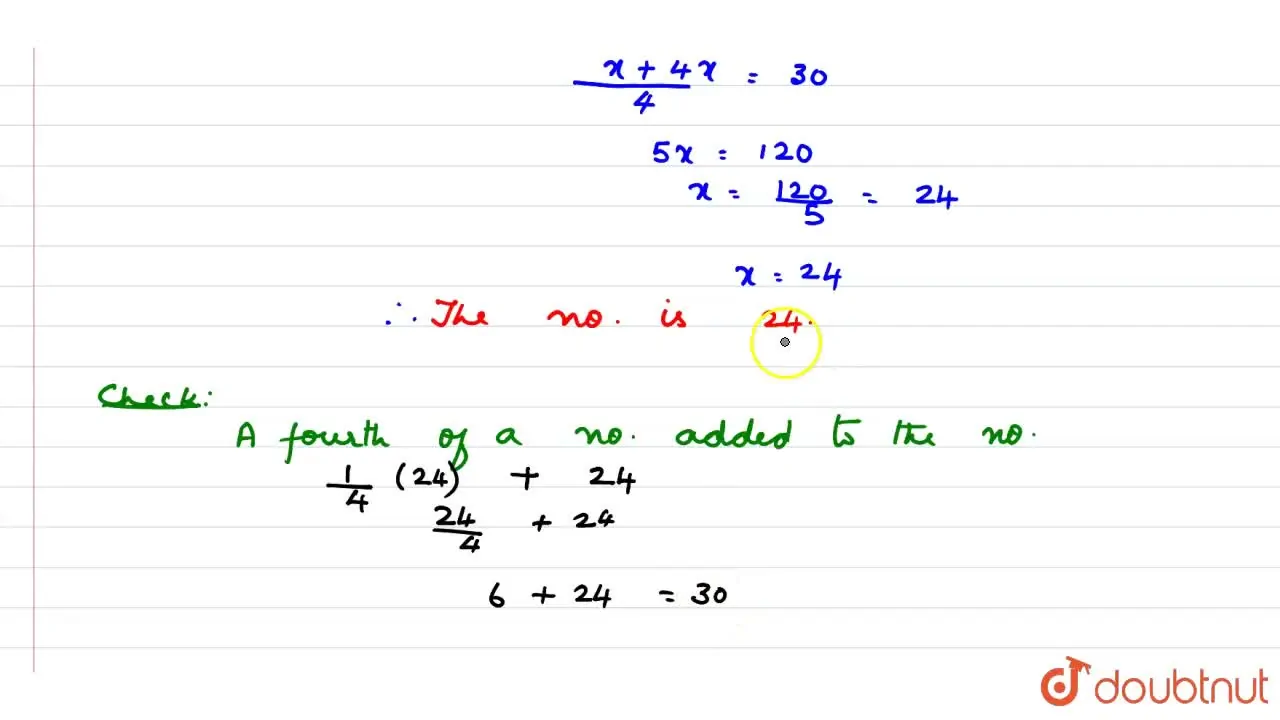 x + 4x = 30
4
5x = 120
x = 120/5 = 24
x = 24
∴ The no. is 24.
Check:
A fourth of a no. added to the no.
1/4 (24) + 24
24/4 + 24
6 + 24 = 30
doubtnut